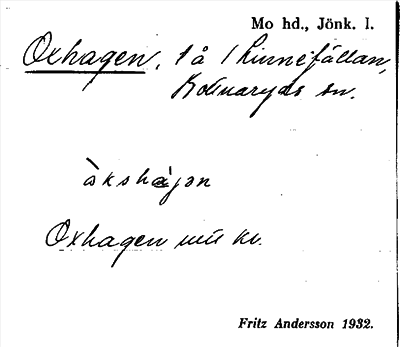 Mo hd., Jönk. l.
Oxhagen, 1 å 1 Linnefällan,
Bottnaryds sn.
åkshàjən
Oxhagen
Fritz Andersson 1932.